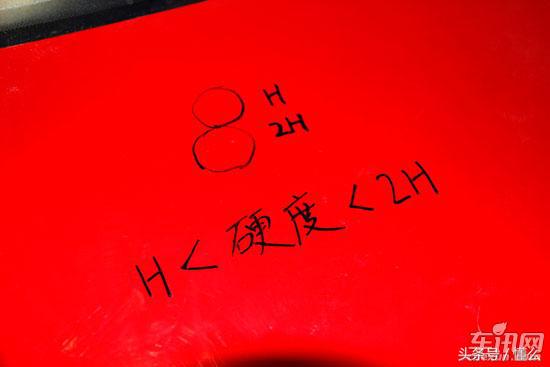 H
2H
H<硬度<2H
车讯网
头条号 / 懂么